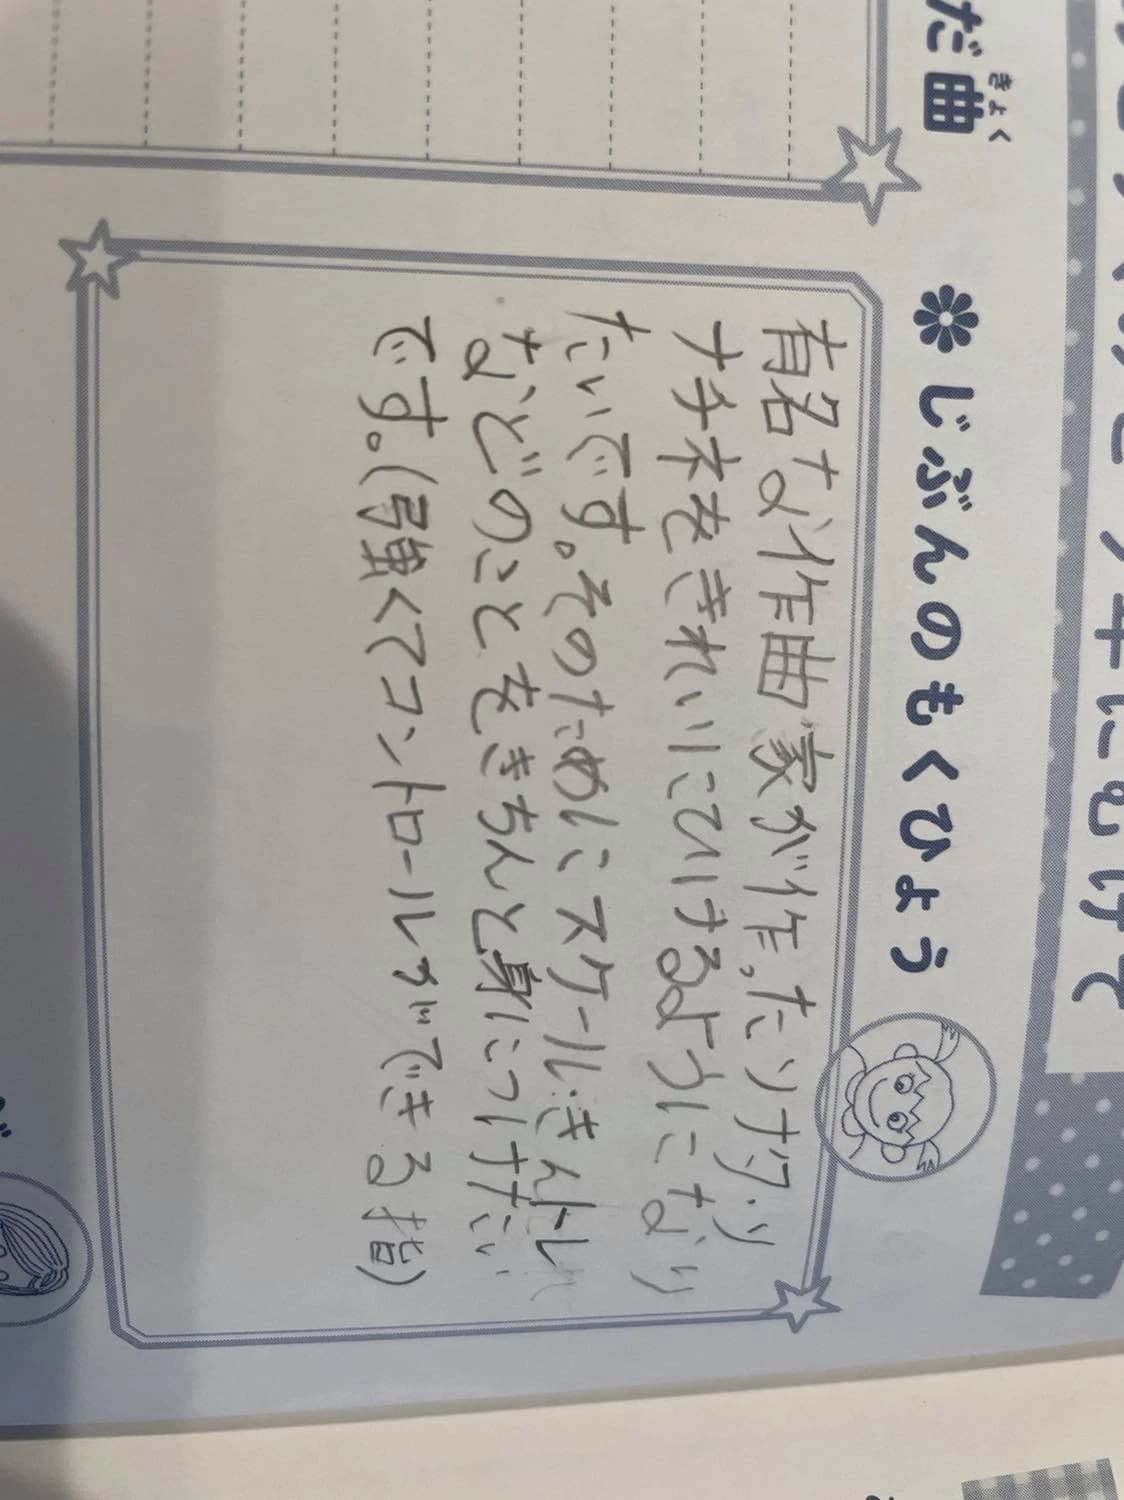 だ曲
きょく
じぶんのもくひょう
有名な作曲家が作ったりソナタ・ソ
ナチネをきれいにひけるようになり
たいです。そのためにスケール・きんトレ
などのことをきちんと身につけたい
です。(強くてコントロールができる指)